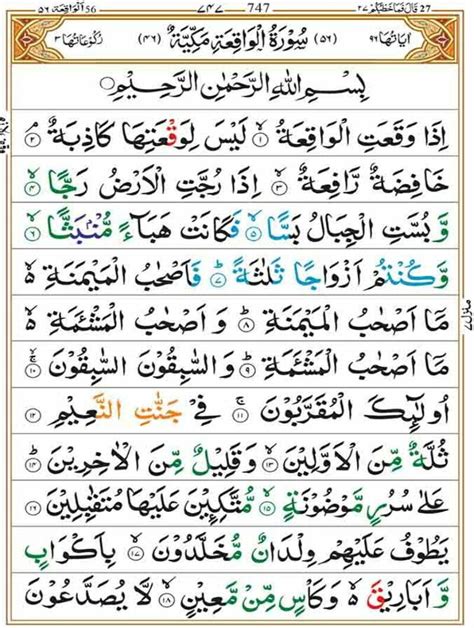 56 الواقعة ٥٦ 747 ٧٤٧ 27 قَالَ فَمَا خَطْبُكُمْ ٢٧
اٰيَاتُهَا ٩٦ (٥٦) سُوْرَةُ الْوَاقِعَةِ مَكِّيَّةٌ (٤٦) رُكُوْعَاتُهَا ٣
بِسْمِ اللّٰهِ الرَّحْمٰنِ الرَّحِيْمِ
اِذَا وَقَعَتِ الْوَاقِعَةُ ۙ﴿١﴾ لَيْسَ لِوَقْعَتِهَا كَاذِبَةٌ ۘ﴿٢﴾
خَافِضَةٌ رَّافِعَةٌ ۙ﴿٣﴾ اِذَا رُجَّتِ الْاَرْضُ رَجًّا ۙ﴿٤﴾
وَّبُسَّتِ الْجِبَالُ بَسًّا ۙ﴿٥﴾ فَكَانَتْ هَبَآءً مُّنْۢبَثًّا ۙ﴿٦﴾
وَّكُنْتُمْ اَزْوَاجًا ثَلٰثَةً ؕ﴿٧﴾ فَاَصْحٰبُ الْمَيْمَنَةِ ۙ۬
مَاۤ اَصْحٰبُ الْمَيْمَنَةِ ؕ﴿٨﴾ وَاَصْحٰبُ الْمَشْـَٔمَةِ ۙ۬
مَاۤ اَصْحٰبُ الْمَشْـَٔمَةِ ؕ﴿٩﴾ وَالسّٰبِقُوْنَ السّٰبِقُوْنَ ۚۙ﴿١٠﴾
اُولٰٓئِكَ الْمُقَرَّبُوْنَ ۚ﴿١١﴾ فِيْ جَنّٰتِ النَّعِيْمِ ﴿١٢﴾
ثُلَّةٌ مِّنَ الْاَوَّلِيْنَ ۙ﴿١٣﴾ وَقَلِيْلٌ مِّنَ الْاٰخِرِيْنَ ؕ﴿١٤﴾
عَلٰى سُرُرٍ مَّوْضُوْنَةٍ ۙ﴿١٥﴾ مُّتَّكِـِٕيْنَ عَلَيْهَا مُتَقٰبِلِيْنَ ﴿١٦﴾
يَطُوْفُ عَلَيْهِمْ وِلْدَانٌ مُّخَلَّدُوْنَ ۙ﴿١٧﴾ بِاَكْوَابٍ
وَّاَبَارِيْقَ ۙ۬ وَكَاْسٍ مِّنْ مَّعِيْنٍ ۙ﴿١٨﴾ لَّا يُصَدَّعُوْنَ